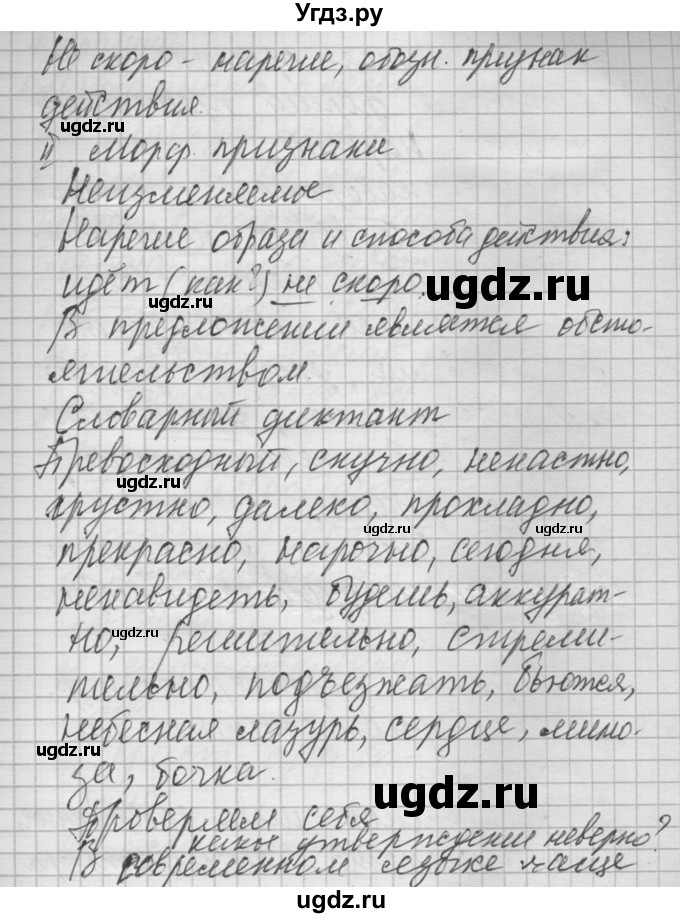 Угдз.ру
Не скоро - наречие, обозн. признак
действия.
ugdz.ru
II) Морф. признаки
ugdz.ru
Неизменяемые
Наречие образа и способа действия:
идёт (как?) не скоро.
ugdz.ru
ugdz.ru
В предложении является обсто-
ятельством.
ugdz.ru
Словарный диктант
Превосходный, скучно, ненастно,
ugdz.ru
грустно, далеко, прохладно,
ugdz.ru
ugdz.ru
прекрасно, нарочно, сегодня,
ugdz.ru
ненавидеть, будешь, аккурат-
но, решительно, стреми-
ugdz.ru
тельно, подъезжать, бьются,
небесная лазурь, сердце, мимо-
ugdz.ru
за, бочка.
ugdz.ru
Проверяем себя
какое утверждение неверно?
В современном языке чаще
ugdz.ru
ugdz.ru